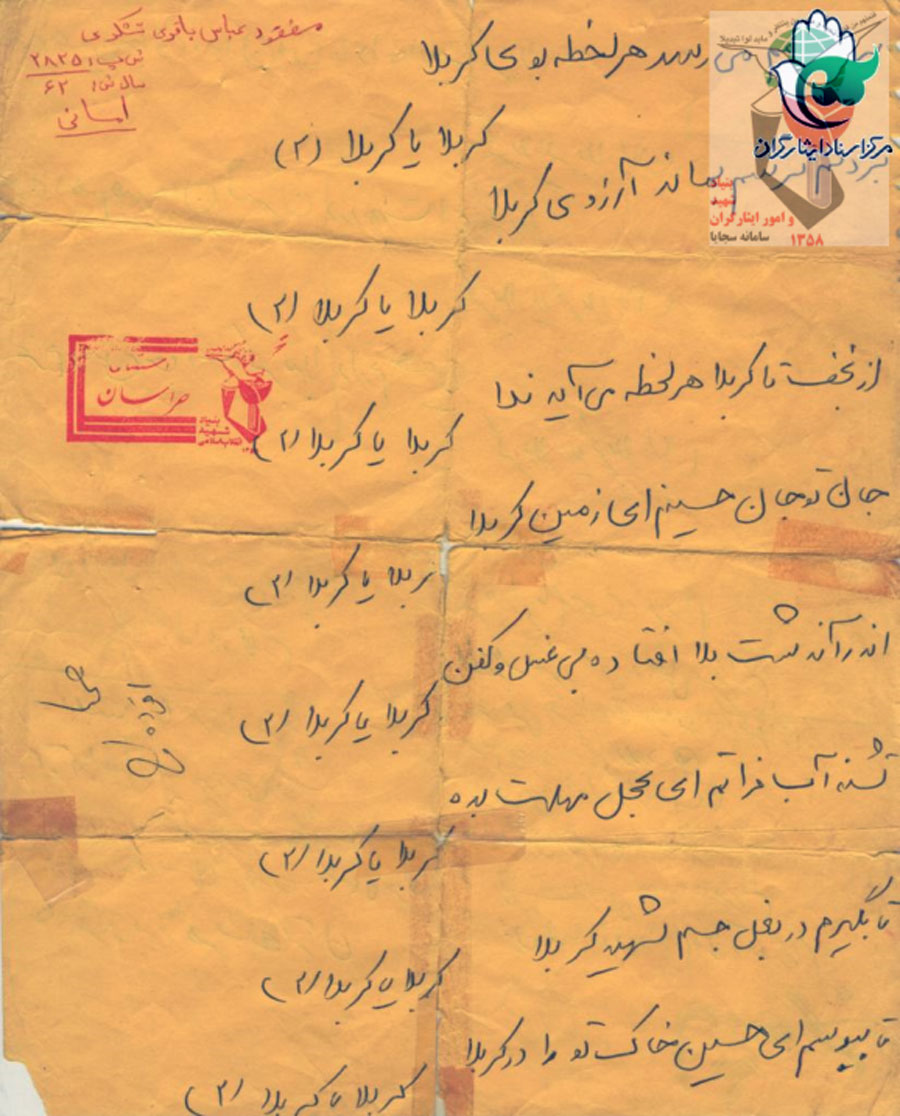 مفقود عباس باقری
ش پ: ۲۸۲۵
سال ش: ۶۲
امانی
می رسد هر لحظه بوی کربلا
کربلا یا کربلا (۲)
آرزوی کربلا
کربلا یا کربلا (۲)
از نجف تا کربلا هر لحظه می آید ندا
کربلا یا کربلا (۲)
جان تو جان حسینم ای زمین کربلا
کربلا یا کربلا (۲)
بلا افتاده بی غسل و کفن
کربلا یا کربلا (۲)
تشنه آب فراتم ای عجل مهلت بده
کربلا یا کربلا (۲)
تا بگیرم در بغل جسم شهید کربلا
کربلا یا کربلا (۲)
تا ببوسم ای حسین خاک تو را در کربلا
کربلا یا کربلا (۲)
خراسان
بنیاد
شهید
انقلاب اسلامی
مرکز اسناد ایثارگران
بنیاد
شهید
و امور ایثارگران
سامانه سجایا
۱۳۵۸